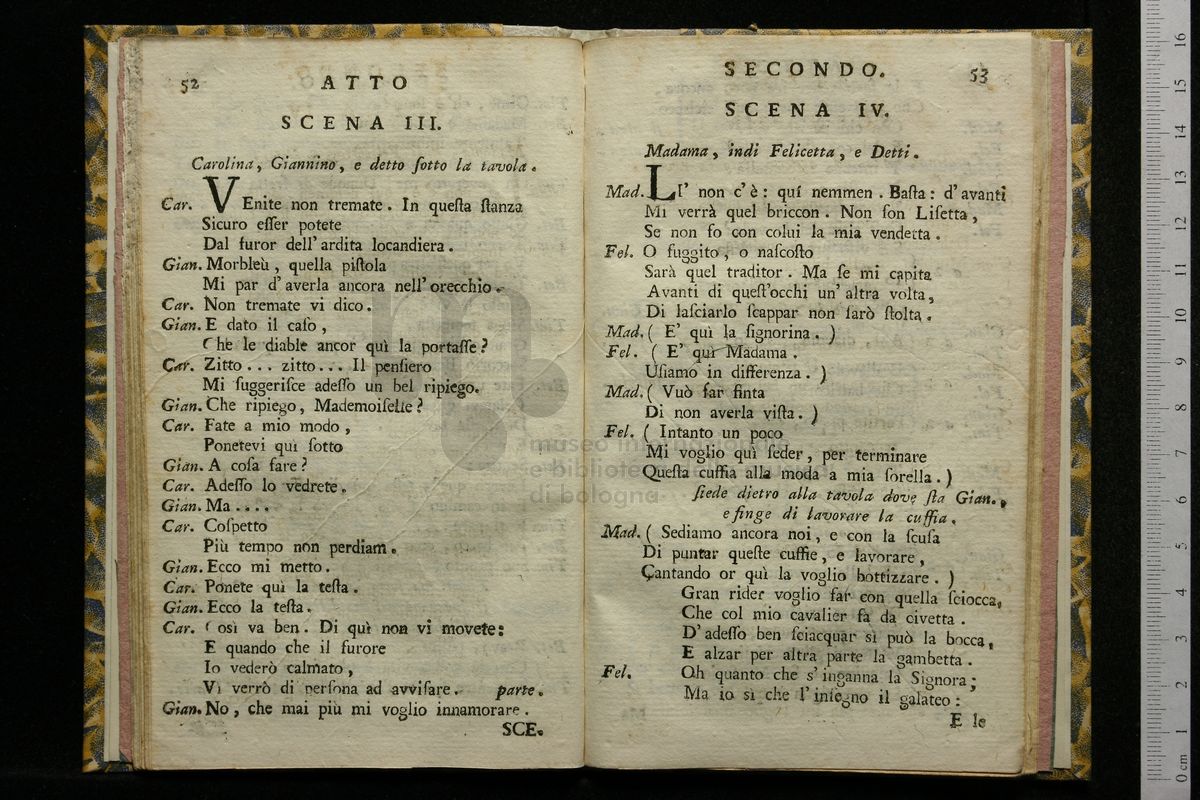 52
ATTO
SCENA III.
Carolina, Giannino, e detto ſotto la tavola.
Car. VEnite non tremate. In queſta ſtanza
Sicuro eſſer potete
Dal furor dell' ardita locandiera.
Gian. Morbleù, quella piſtola
Mi par d' averla ancora nell' orecchio.
Car. Non tremate vi dico.
Gian. E dato il caſo,
Che le diable ancor quì la portaſſe?
Car. Zitto... zitto... Il penſiero
Mi ſuggeriſce adeſſo un bel ripiego.
Gian. Che ripiego, Mademoiſelle?
Car. Fate a mio modo,
Ponetevi quì ſotto
Gian. A coſa fare?
Car. Adeſſo lo vedrete.
Gian. Ma....
Car. Coſpetto
Più tempo non perdiam.
Gian. Ecco mi metto.
Car. Ponete quì la teſta.
Gian. Ecco la teſta.
Car. Così va ben. Di quì non vi movete:
E quando che il furore
Io vederò calmato,
Vi verrò di perſona ad avviſare. parte.
Gian. No, che mai più mi voglio innamorare.
SCE.
SECONDO.
53
SCENA IV.
Madama, indi Felicetta, e Detti.
Mad. LI' non c'è: quí nemmen. Baſta: d' avanti
Mi verrà quel briccon. Non ſon Liſetta,
Se non fo con colui la mia vendetta.
Fel. O fuggito, o naſcoſto
Sarà quel traditor. Ma ſe mi capita
Avanti di queſt'occhi un' altra volta,
Di laſciarlo ſcappar non ſarò ſtolta.
Mad. ( E' quì la ſignorina. )
Fel. ( E' quì Madama.
Uſiamo in differenza. )
Mad. ( Vuò far finta
Di non averla viſta. )
Fel. ( Intanto un poco
Mi voglio quì ſeder, per terminare
Queſta cuffia alla moda a mia ſorella. )
ſiede dietro alla tavola dove ſta Gian.,
e finge di lavorare la cuffia.
Mad. ( Sediamo ancora noi, e con la ſcuſa
Di puntar queſte cuffie, e lavorare,
Cantando or quì la voglio bottizzare. )
Gran rider voglio far con quella ſciocca,
Che col mio cavalier fa da civetta.
D' adeſſo ben ſciacquar si può la bocca,
E alzar per altra parte la gambetta.
Fel. Oh quanto che s' inganna la Signora;
Ma io sì che l' inſegno il galateo:
E le
museo internazionale
e biblioteca della musica
di bologna
0 cm 1 2 3 4 5 6 7 8 9 10 11 12 13 14 15 16